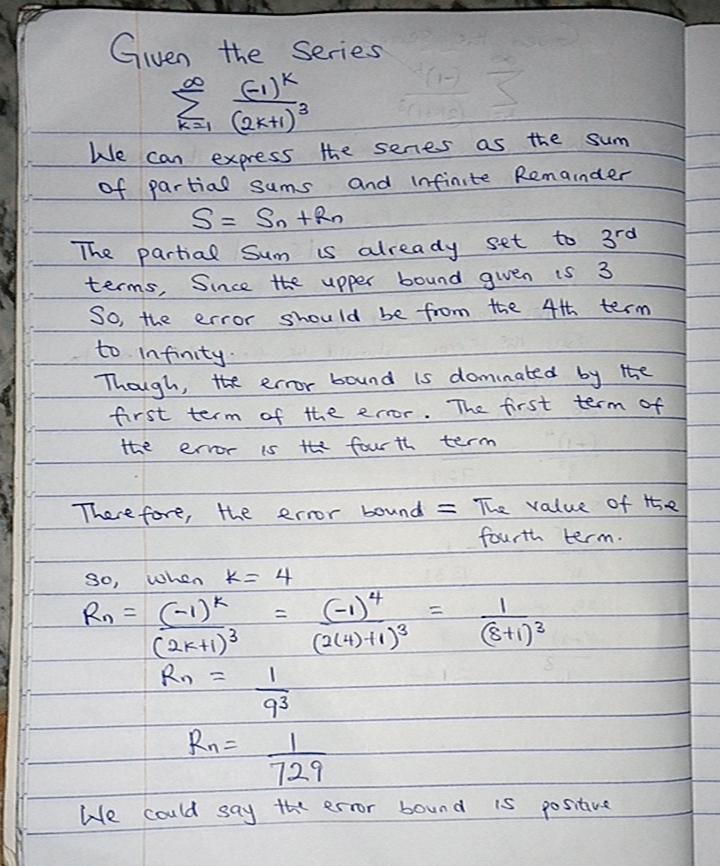 Given the Series
∞
Σ (-1)^k / (2k+1)^3
k=1
We can express the series as the sum
of partial sums and infinite Remainder
S = Sn + Rn
The partial Sum is already set to 3rd
terms, Since the upper bound given is 3
So, the error should be from the 4th term
to infinity.
Though, the error bound is dominated by the
first term of the error. The first term of
the error is the fourth term
Therefore, the error bound = The value of the
fourth term.
So, when k = 4
Rn = (-1)^k / (2k+1)^3 = (-1)^4 / (2(4)+1)^3 = 1 / (8+1)^3
Rn = 1 / 9^3
Rn = 1 / 729
We could say the error bound is positive